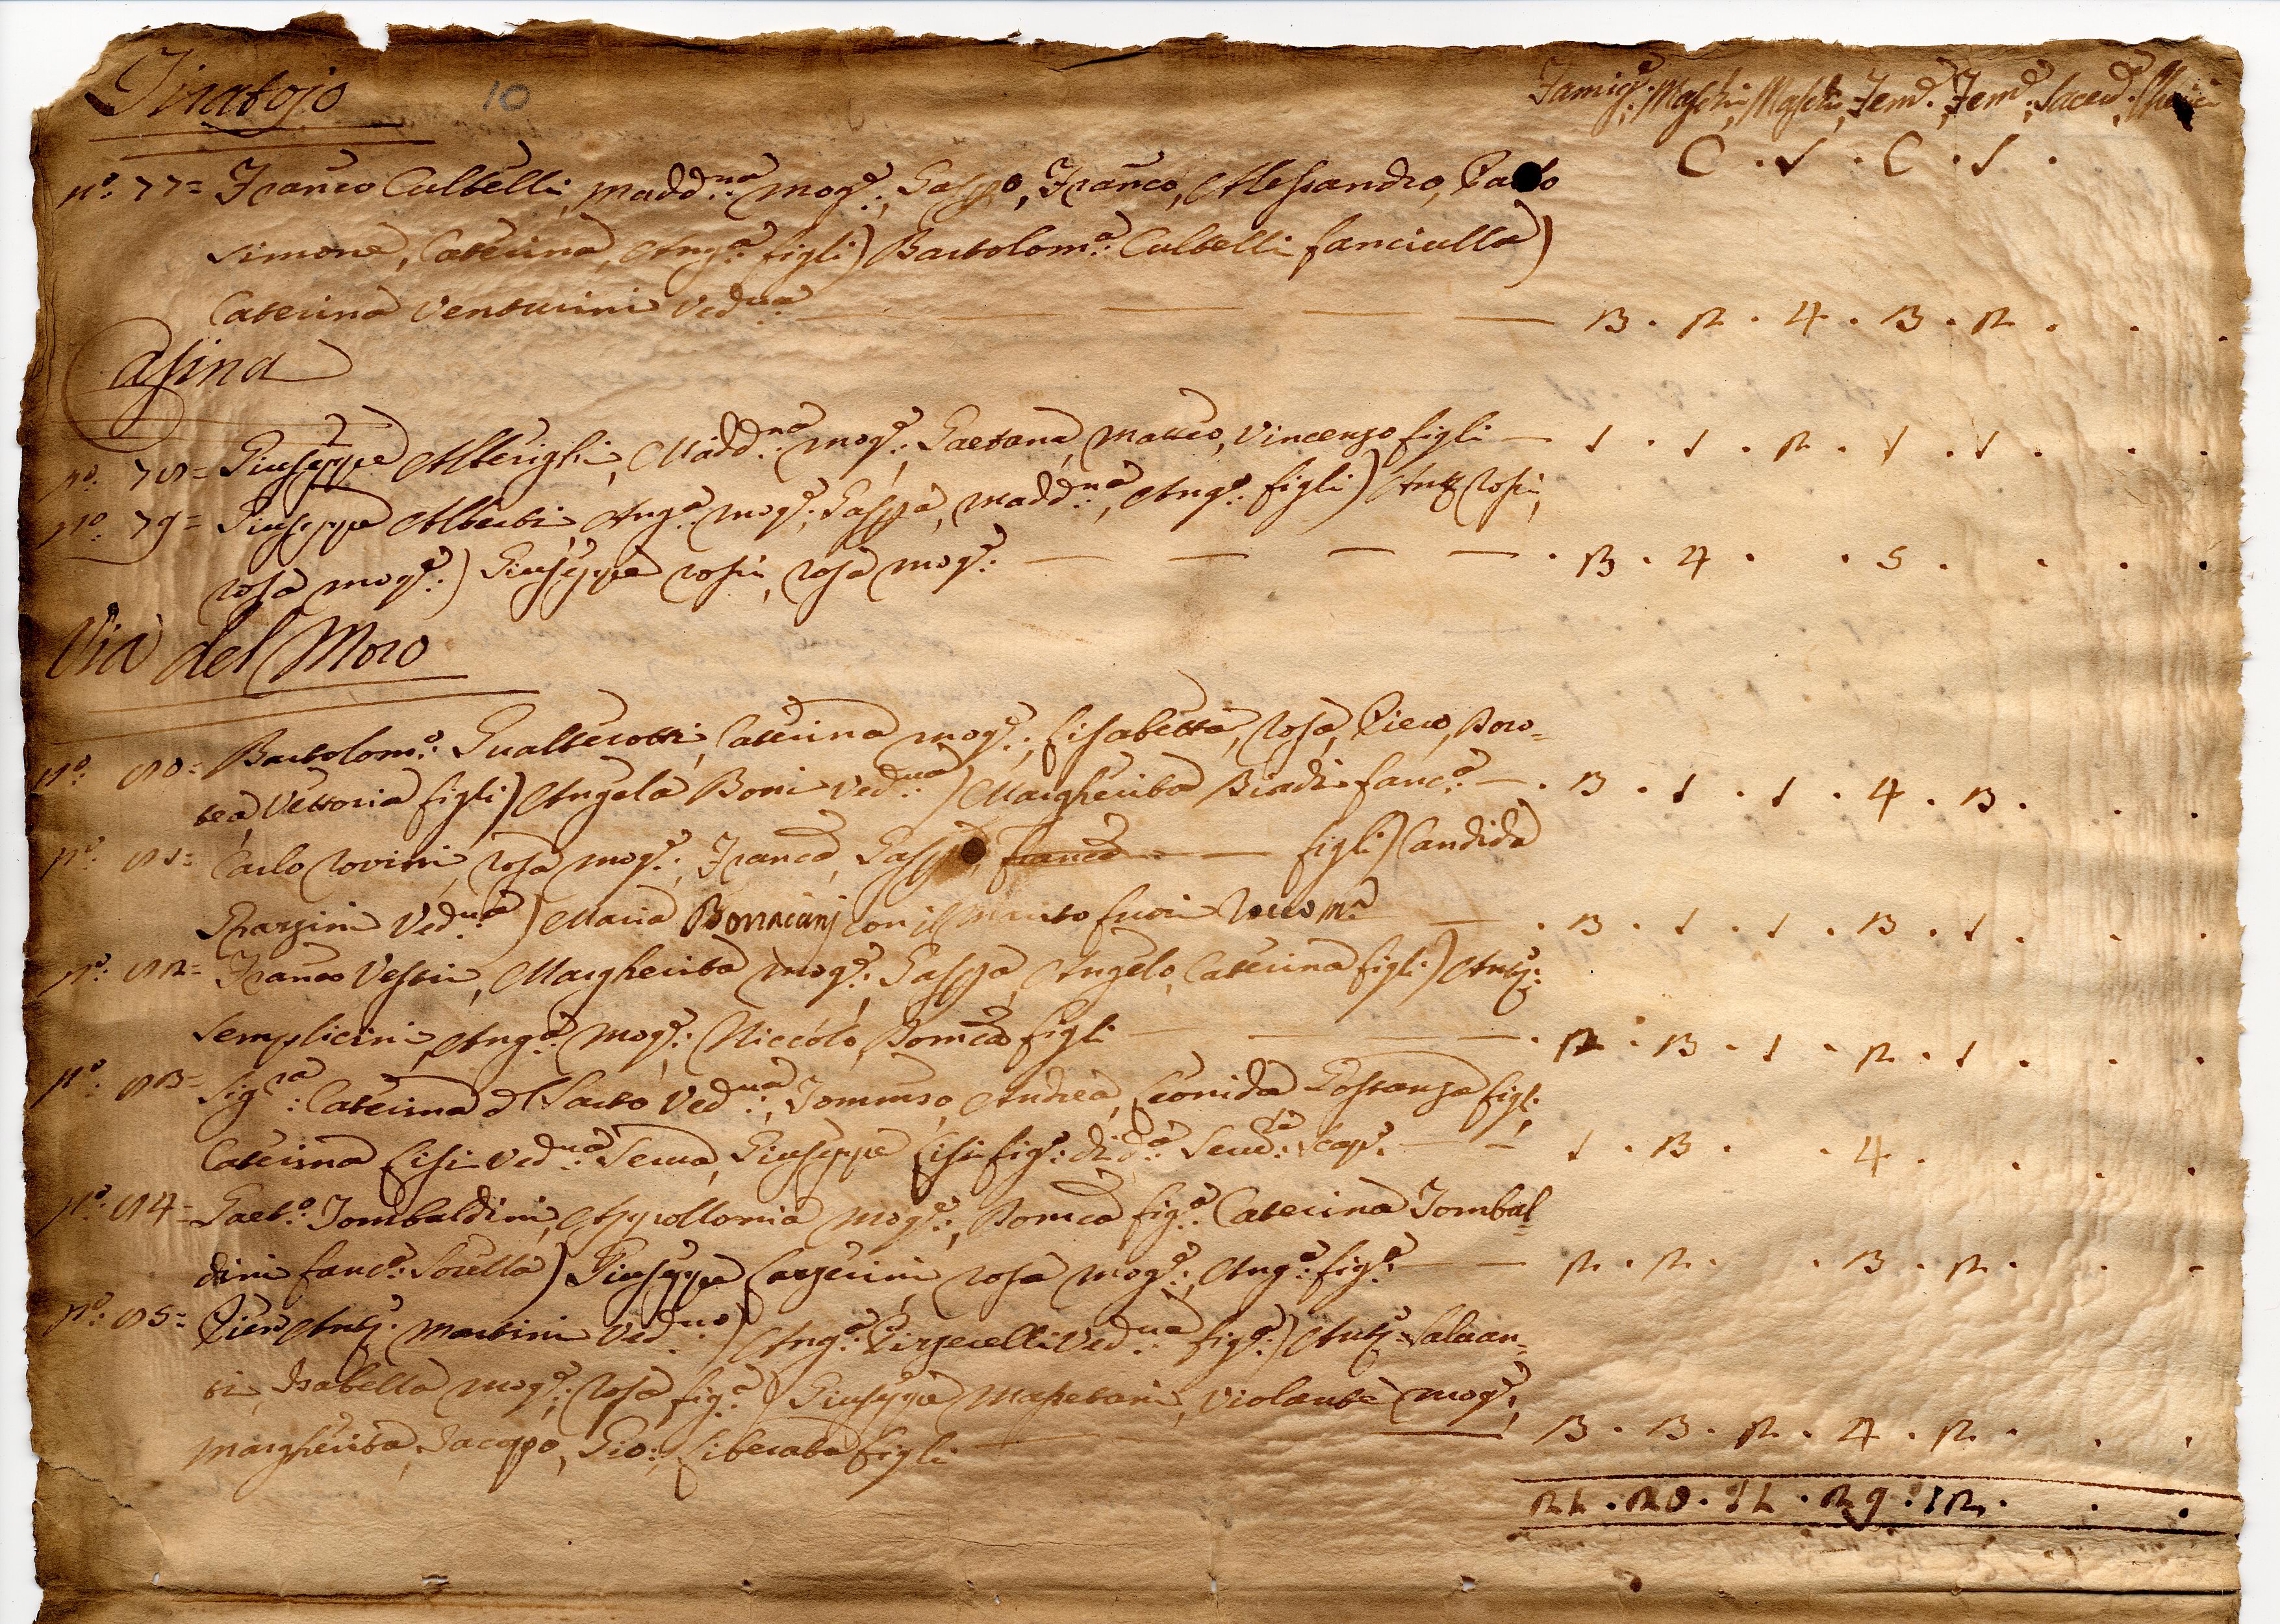 Tiratojo 10
Famig.e, Maschi, Maschi, Fem.e, Fem.e, Sacerd.
C . S . C . S .
n.o 77= Franco Cultelli, Madd.na mog.e, Gasp.o, Franco, Alessandro, Paolo
Simone, Caterina, Ang.a figli) Bartolom.a Cultelli fanciulla)
Caterina Venturini Ved.ua 3 . 2 . 4 . 3 . 2 .
Casina
n.o 78= Giuseppe Alberighi, Madd.na mog.e, Gaetana, Matteo, Vincenzo figli 1 . 1 . 2 . 1 . 1 .
n.o 79= Giuseppe Alberti, Ang.a mog.e, Gasp.a, Madd.na, Ang.a figli) Ant.o Rosi,
Rosa mog.e) Giuseppe Rosi, Rosa mog.e 3 . 4 . . 5 .
Via del Moro
n.o 80= Bartolom.o Gualterotti, Caterina mog.e, Lisabetta, Rosa, Piero, Doro=
tea, Vettoria figli) Angela Boni Ved.ua) Margherita Biadi fanc.a 3 . 1 . 1 . 4 . 3 .
n.o 81= Carlo Rovini, Rosa mog.e, Franco, figli) Candida
Ved.ua) Maria con il marito fuori 3 . 1 . 1 . 3 . 1 .
n.o 82= Franco Vestri, Margherita mog.e, Gasp.a, Angelo, Caterina figli) Ant.o
Semplicini, Ang.a mog.e, Niccolò, Dom.ca figli 2 . 3 . 1 . 2 . 1 .
n.o 83= Sig.ra Caterina d Sarto Ved.ua, Tommaso, Andrea, Leonida Costanza figli,
Caterina Lisi Ved.ua Serva, Giuseppe Lisi fig.o di d.a 1 . 3 . . 4 .
n.o 84= Gaet.o Tombaldini, Appollonia mog.e, Dom.ca fig.a Caterina Tombal=
dini fanc.a Sorella) Giuseppe Lazzerini, Rosa mog.e, Ang.a fig.a 2 . 2 . . 3 . 2 .
n.o 85= Piero Ant.o Martini Ved.uo) Ang.a Ved.ua fig.a) Ant.o Salvan=
ti, Isabella mog.e, Rosa fig.a) Giuseppe Masetani, Violante mog.e,
Margherita, Jacopo, Gio:, Liberata figli 3 . 3 . 2 . 4 . 2 .
21 . 20 . 11 . 29 . 12 .